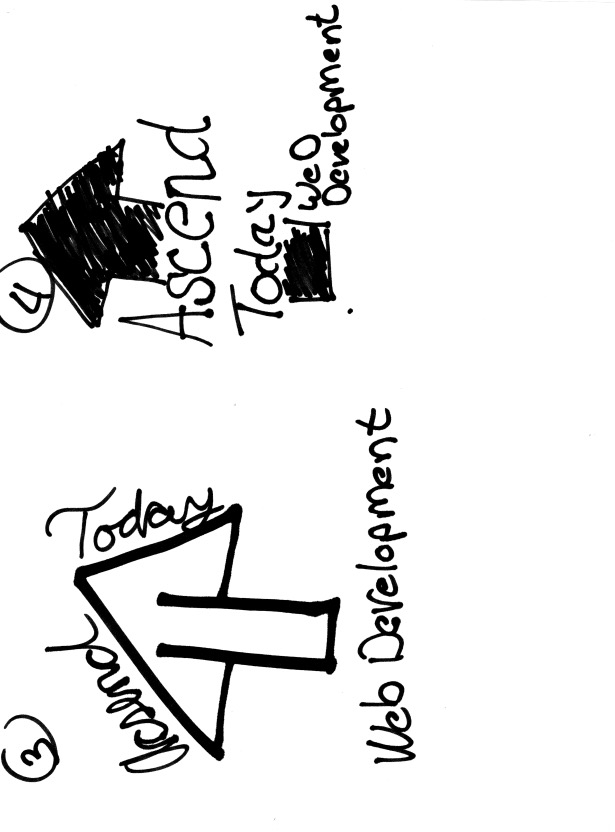 3
Ascend
Today
Web Development
4
Ascend
Today
Web
Development